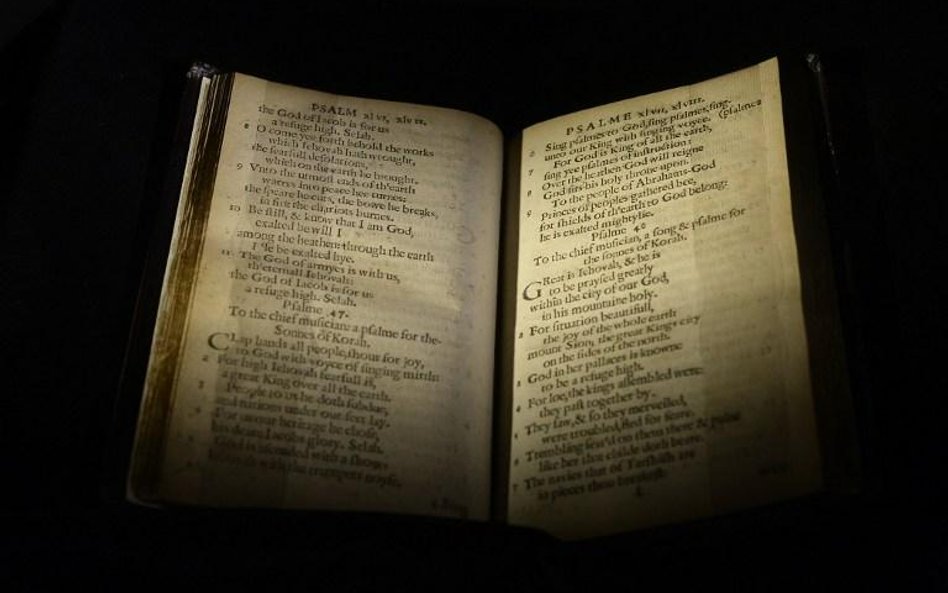 PSALM xlvi, xlvii.
the God of Iacob is for us
a refuge high. Selah.
8 O come yee forth behold the works
which Iehovah hath wrought,
the fearfull desolations,
which on the earth he brought.
9 Vnto the utmost ends of th'earth
warres into peace hee turnes:
the speare he cuts, the bowe he breaks,
in fire the chariots burnes.
10 Be still, & know that I am God,
exalted be will I
among the heathen: through the earth
I'le be exalted hye.
11 The God of armyes is with us,
th'eternall Iehovah:
the God of Iacob is for us
a refuge high. Selah.
Psalme 47.
To the chief musician: a psalme for the
Sonnes of Korah.
CLap hands all people, shout for joy,
2 to God with voyce of singing mirth:
For high Iehovah fearfull is,
a great King over all the earth.
3 People to us he doth subdue,
and nations under our feet lay.
4 For us our heritage he chose,
his deare Iacobs glory. Selah.
5 God is ascended with a shout:
Iehovah with the trumpets noyse.
PSALME xlvii, xlviii.
6 Sing psalmes to God, sing psalmes, sing
(psalmes
unto our King with singing voyce.
7 For God is King of all the earth,
sing yee psalmes of instruction:
8 Over the heathen God will reigne
God sits his holy throne upon.
9 To the people of Abrahams God
Princes of peoples gathered bee,
for shields of th'earth to God belong:
he is exalted mightylie.
Psalme 48
To the chief musician, a song & psalme for
the sonnes of Korah.
GReat is Iehovah, & he is
to be praysed greatly
within the city of our God,
in his mountaine holy.
2 For situation beautifull,
the joy of the whole earth
mount Sion; the great Kings city
on the sides of the north.
3 God in her pallaces is knowne
to be a refuge high.
4 For loe, the kings assembled were:
they past together by.
5 They saw, & so they merveiled,
were troubled, fled for feare.
6 Trembling seiz'd on them there & paine
like her that childe doth beare.
7 The navies that of Tarshish are
in pieces thou breakest: